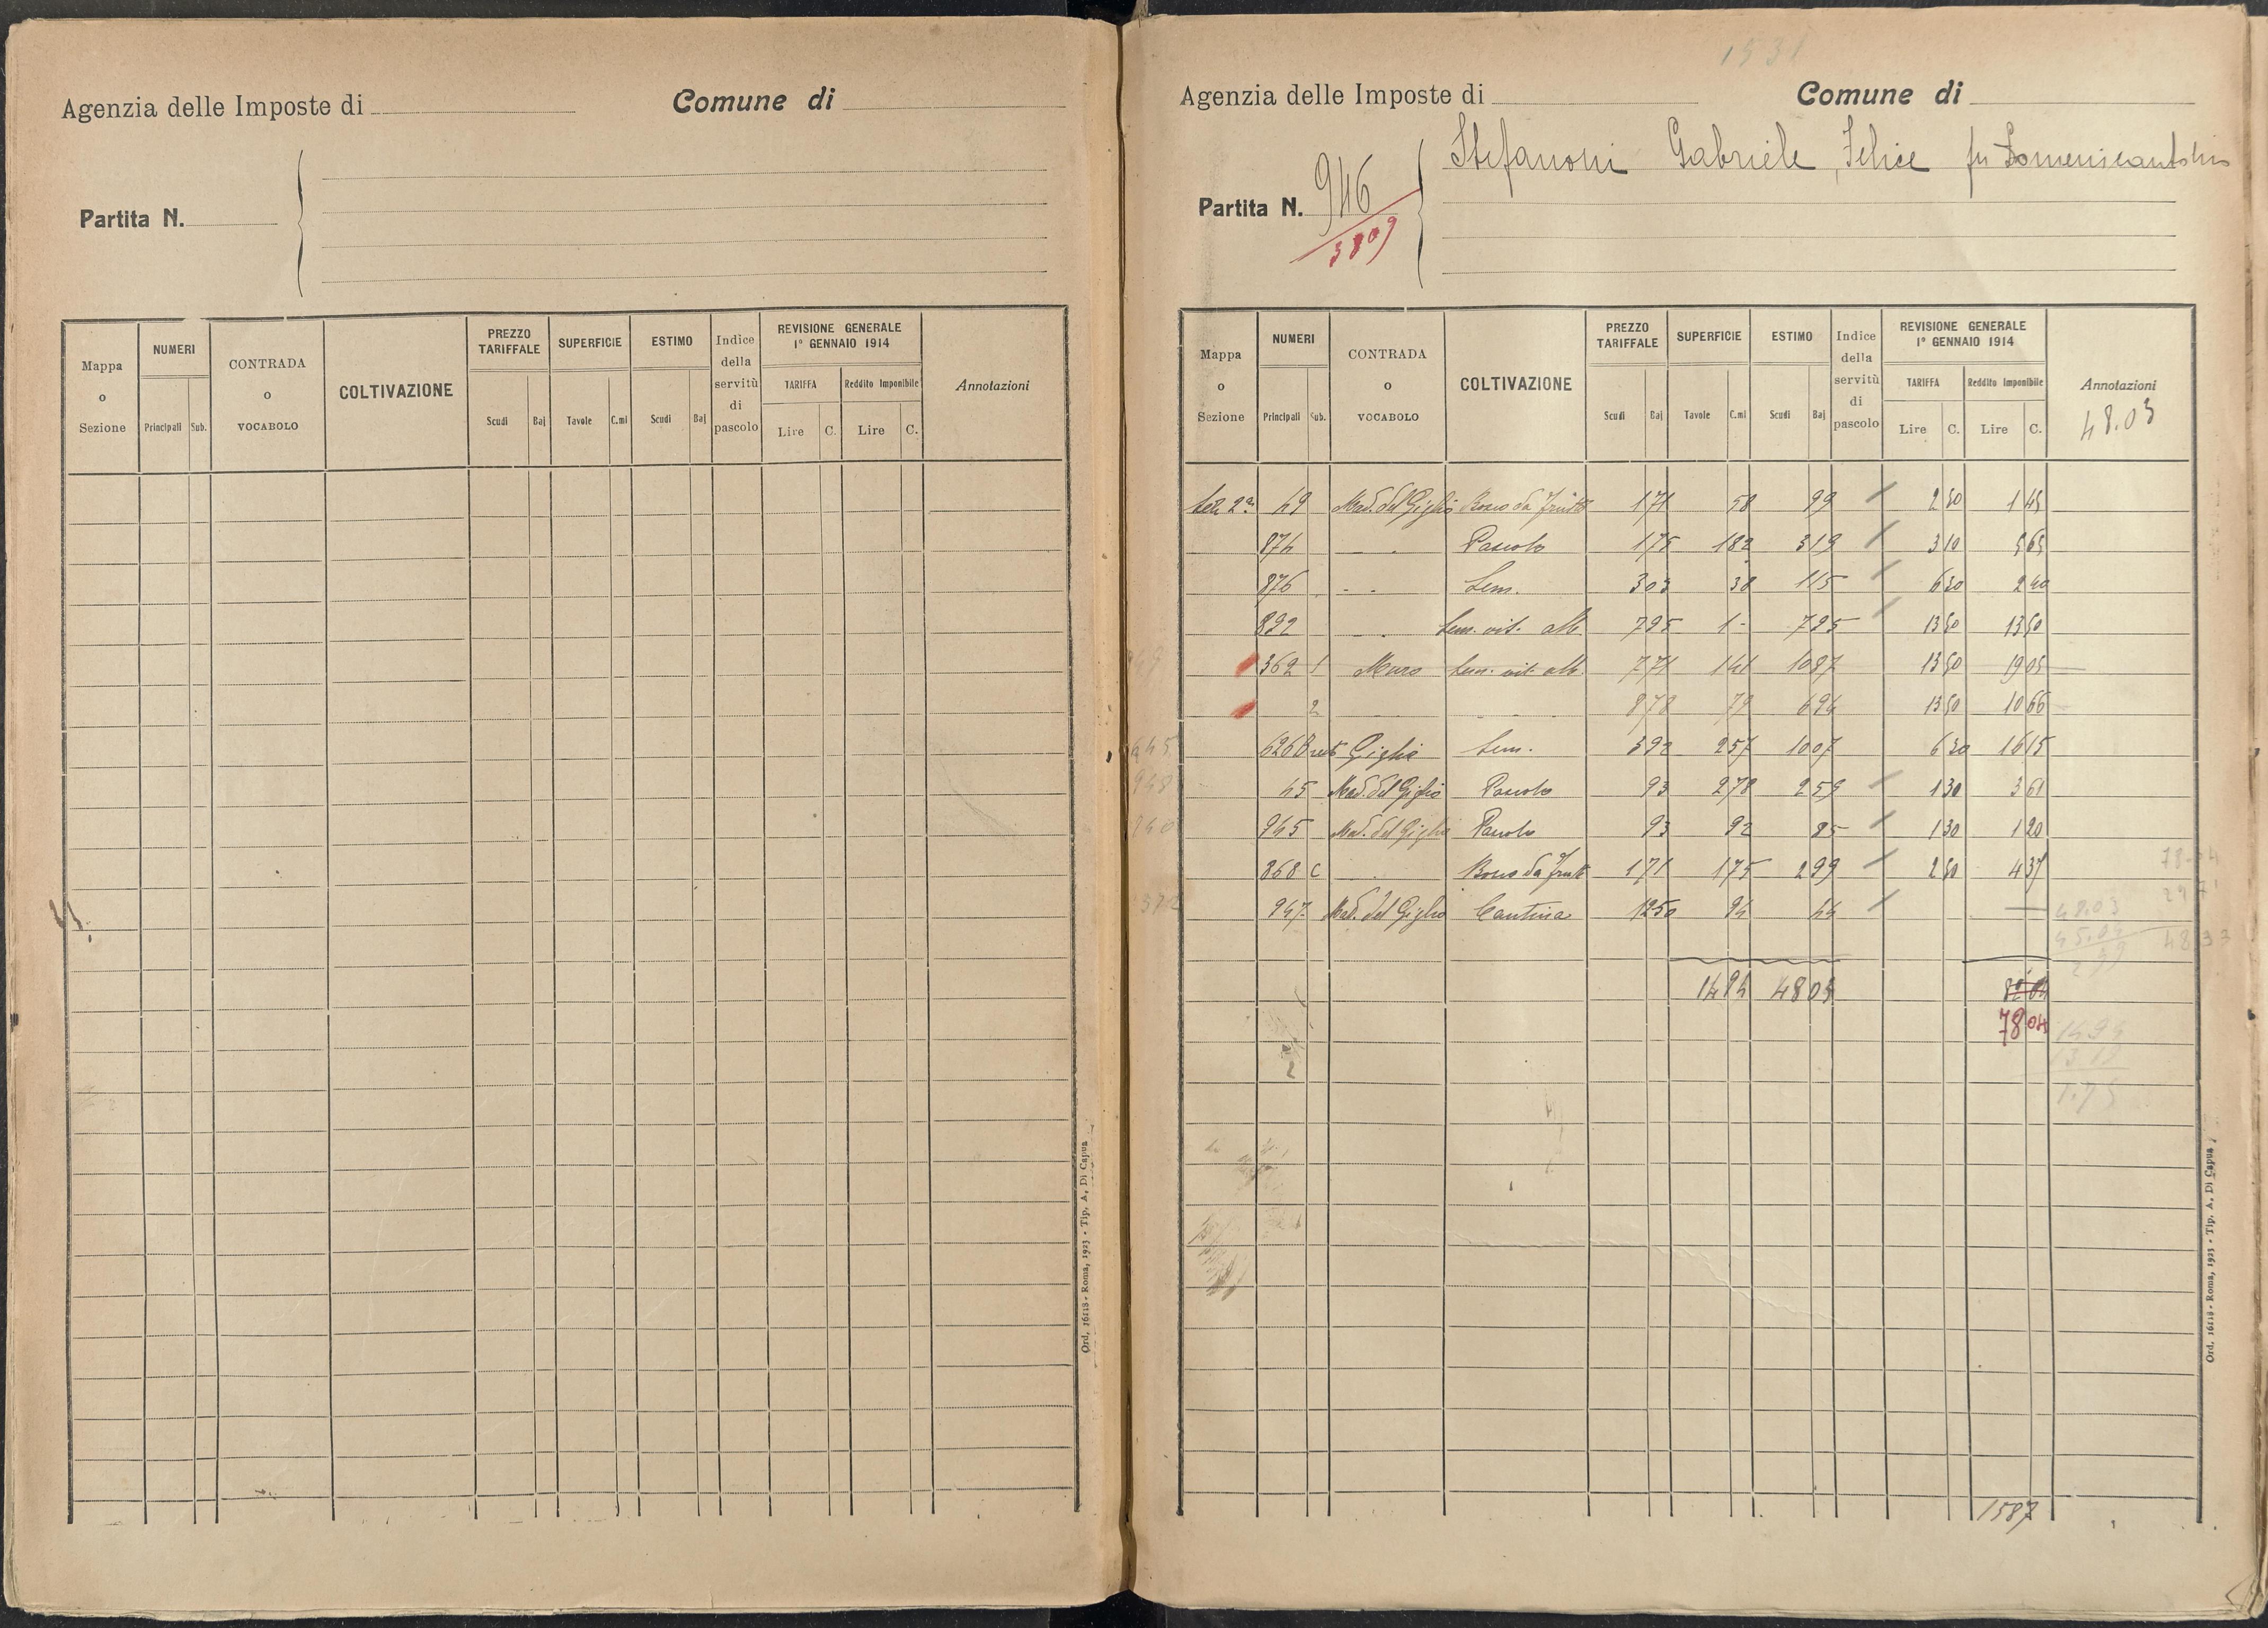 Agenzia delle Imposte di Comune di
Partita N.
Mappa o Sezione NUMERI Principali Sub. CONTRADA o VOCABOLO COLTIVAZIONE PREZZO TARIFFALE Scudi Baj SUPERFICIE Tavole C.mi ESTIMO Scudi Baj Indice della servitù di pascolo REVISIONE GENERALE 1° GENNAIO 1914 TARIFFA Lire C. Reddito Imponibile Lire C. Annotazioni
Ord. 16118 - Roma, 1923 - Tip. A. Di Capua
1931
Agenzia delle Imposte di Comune di
Stefanoni Gabriele, Felice fu Domenicantonio
Partita N. 946
3809
Mappa o Sezione NUMERI Principali Sub. CONTRADA o VOCABOLO COLTIVAZIONE PREZZO TARIFFALE Scudi Baj SUPERFICIE Tavole C.mi ESTIMO Scudi Baj Indice della servitù di pascolo REVISIONE GENERALE 1° GENNAIO 1914 TARIFFA Lire C. Reddito Imponibile Lire C. Annotazioni
48.03
2a 49 Mad. del Giglio Bosco da frutto 171 58 99 2 50 1 45
874 Pascolo 175 182 319 3 10 5 65
876 Sem. 303 38 115 6 30 2 40
892 Sem. vit. alb. 795 1 - 795 13 50 13 50
362 1 Muro Sem. vit. alb. 771 141 1087 13 50 19 05
2 878 79 694 13 50 10 66
626 B Giglio Sem. 392 257 1007 6 30 16 15
45 Mad. del Giglio Pascolo 93 278 259 1 30 3 61
945 Mad. del Giglio Pascolo 93 92 85 1 30 1 20
868 C Bosco da frutt 171 175 299 2 50 4 37
947 Mad. del Giglio Cantina 1250 94 44
78.04
48.03
14 94 48 03
78 04
1.75
1587
Ord. 16118 - Roma, 1923 - Tip. A. Di Capua